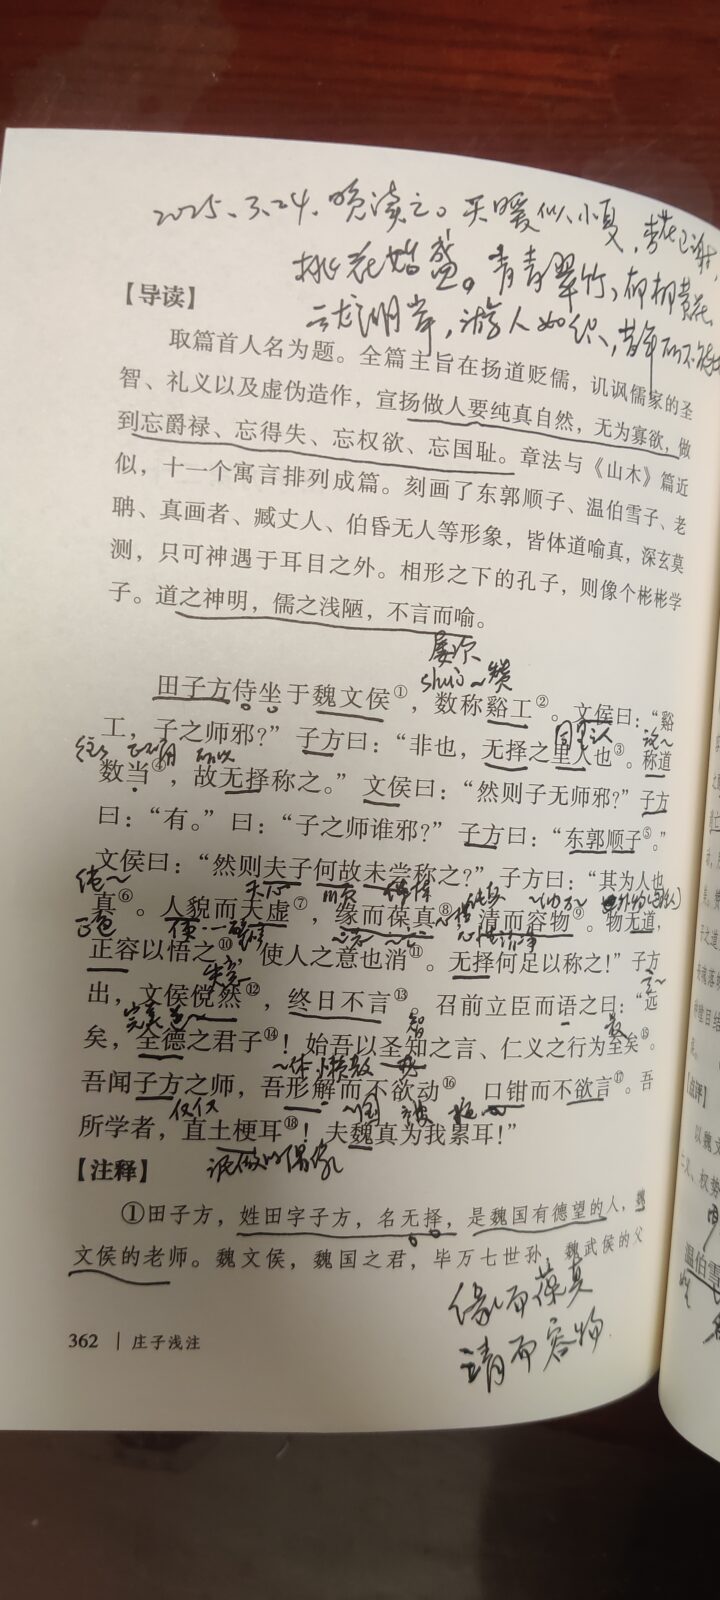 2025.3.24.晚读之。天暖似小夏，杏花已谢，
桃花始盛。青青翠竹，郁郁黄花，
云龙湖岸，游人如织，昔年
【导读】
取篇首人名为题。全篇主旨在扬道贬儒，讥讽儒家的圣
智、礼义以及虚伪造作，宣扬做人要纯真自然，无为寡欲，做
到忘爵禄、忘得失、忘权欲、忘国耻。章法与《山木》篇近
似，十一个寓言排列成篇。刻画了东郭顺子、温伯雪子、老
聃、真画者、臧丈人、伯昏无人等形象，皆体道喻真，深玄莫
测，只可神遇于耳目之外。相形之下的孔子，则像个彬彬学
子。道之神明，儒之浅陋，不言而喻。
屡次
shuò~赞
田子方侍坐于魏文侯①，数称谿工②。文侯曰：“谿
同里人 说~
工，子之师邪？”子方曰：“非也，无择之里人也③。称道
往往 所以
数当④，故无择称之。”文侯曰：“然则子无师邪？”子方
曰：“有。”曰：“子之师谁邪？”子方曰：“东郭顺子⑤。”
文侯曰：“然则夫子何故未尝称之？”子方曰：“其为人也
纯~
真⑥。人貌而天虚⑦，缘而葆真⑧，清而容物⑨。物无道，
正容以悟之⑩，使人之意也消⑪。无择何足以称之！”子方
失意 言~
出，文侯傥然⑫，终日不言⑬，召前立臣而语之曰：“远
完美 智 最
矣，全德之君子⑭！始吾以圣知之言、仁义之行为至矣⑮。
~体
吾闻子方之师，吾形解而不欲动⑯，口钳而不欲言⑰。吾
仅仅 ~国
所学者，直土梗耳⑱！夫魏真为我累耳！”
泥做的偶像
【注释】
①田子方，姓田字子方，名无择，是魏国有德望的人，魏
文侯的老师。魏文侯，魏国之君，毕万七世孙，魏武侯的父
缘而葆真
清而容物
362 | 庄子浅注
【点评】
以魏文
权势
温伯雪